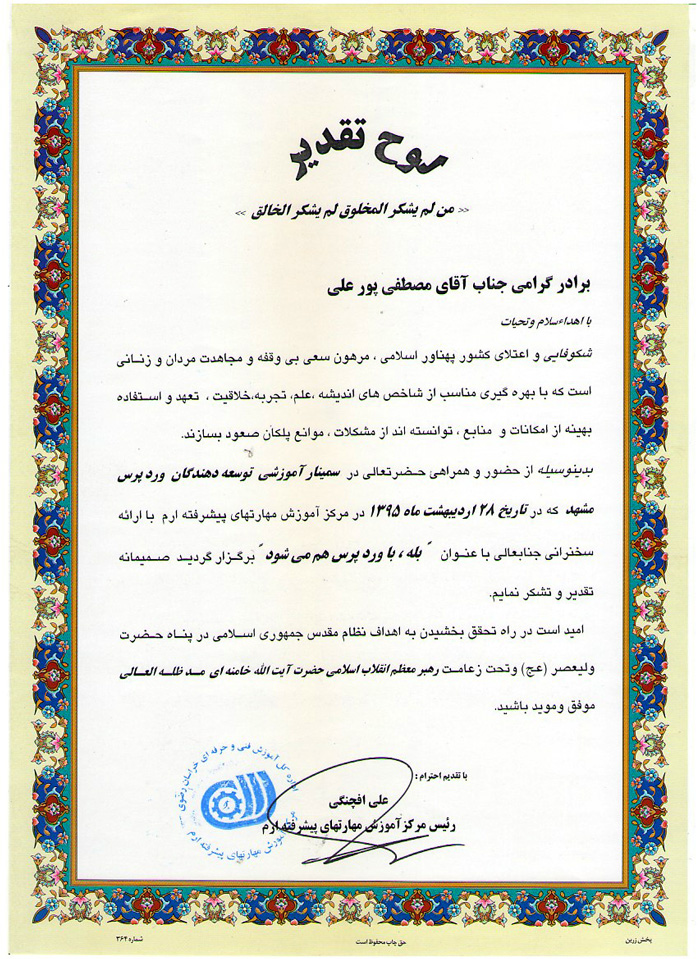 لوح تقدیر
<< من لم یشکر المخلوق لم یشکر الخالق >>
برادر گرامی جناب آقای مصطفی پور علی
با اهداء سلام وتحیات
شکوفایی و اعتلای کشور پهناور اسلامی ، مرهون سعی بی وقفه و مجاهدت مردان و زنـانی
است که با بهره گیری مناسب از شاخص های اندیشه ،علم، تجربه،خلاقیت ، تعهد و اسـتفاده
بهینه از امکانات و منابع ، توانسته اند از مشکلات ، موانع پلکان صعود بسازند.
بدینوسیله از حضور و همراهی حضـرتعالی در سمینار آموزشی توسعه دهندگان ورد پرس
مشهد که در تاریخ ۲۸ اردیبهشت ماه ۱۳۹۵ در مرکز آموزش مهارتهای پیشرفته ارم با ارائه
سخنرانی جنابعالی با عنـوان " بله ، با ورد پرس هم می شود " برگـزار گردیـد صـمیمانه
تقدیر و تشکر نمایم.
امید است در راه تحقق بخشیدن به اهداف نظام مقدس جمهوری اسـلامی در پنـاه حـضرت
ولیعصر (عج) وتحت زعامـت رهبر معظم انقلاب اسلامی حضرت آیت الله خامنه ای مـد ظلـه العـالی
موفق وموید باشید.
با تقدیم احترام :
علی افچنگی
رئیس مرکز آموزش مهارتهای پیشرفته ارم
اداره کل آموزش فنی و حرفه ای خراسان رضوی
مرکز آموزش مهارتهای پیشرفته ارم
پخش زرین
حق چاپ محفوظ است
شماره ۳۶۴